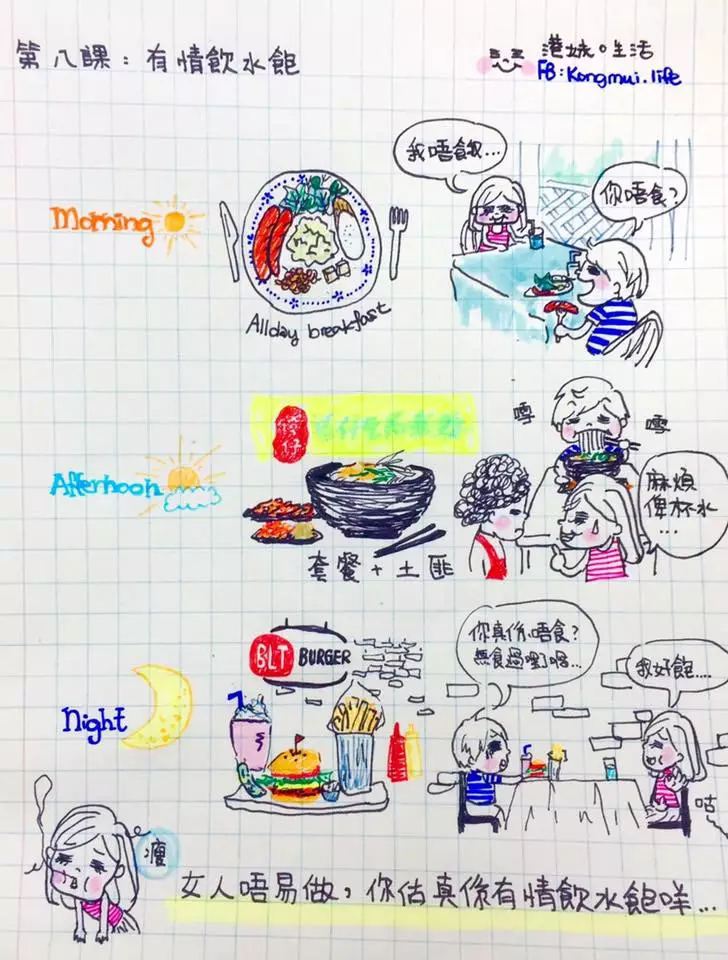 第八課：有情飲水飽
港妹。生活
FB:Kongmui.life
Morning
我唔餓...
你唔食?
Allday breakfast
譚仔
嘩
嘩
Afternoon
麻煩
俾杯水
...
套餐 + 土匪
BLT BURGER
你真係唔食?
無食過嘢喎...
我好飽....
Night
咕
瘦
女人唔易做，你估真係有情飲水飽咩...